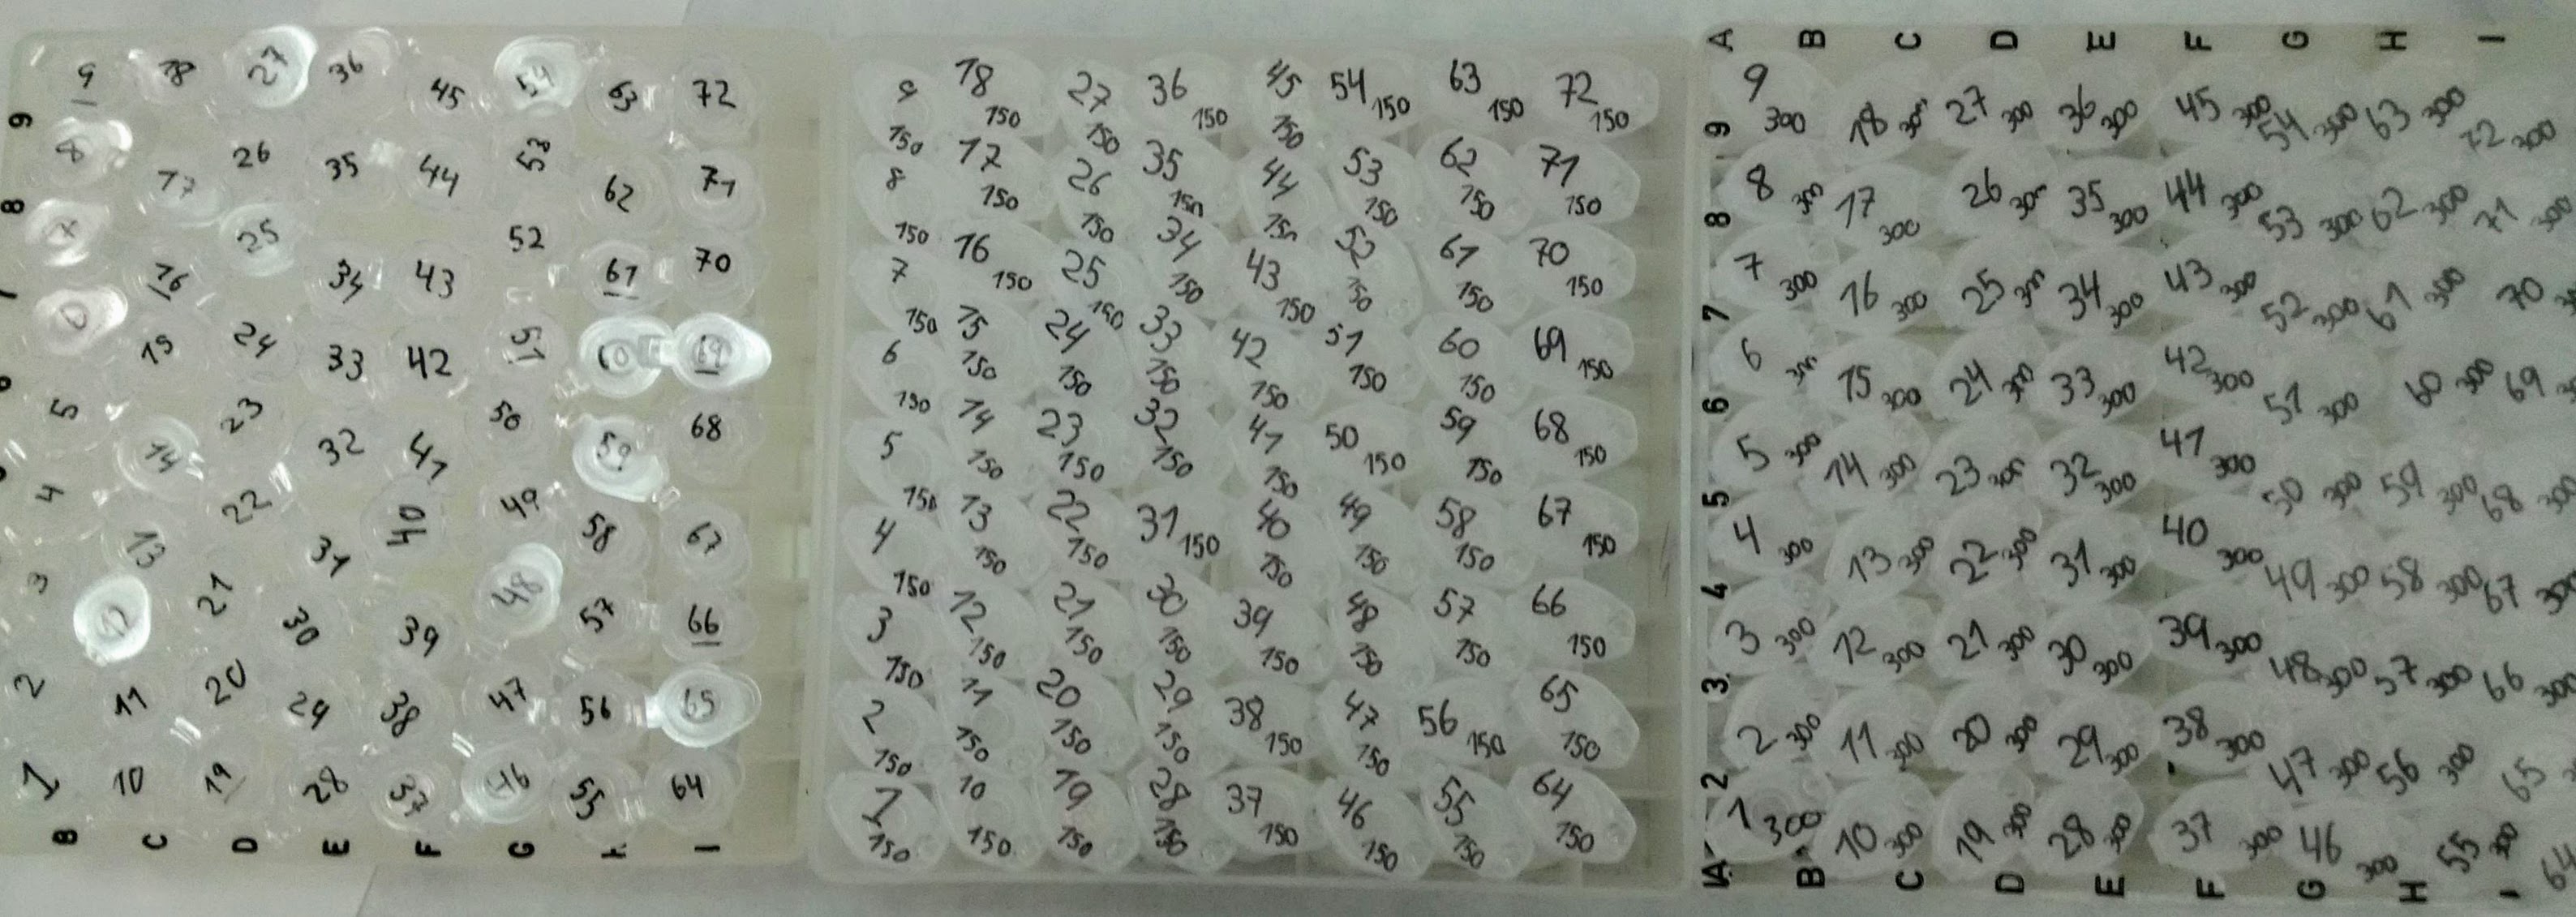 9 18 27 36 45 54 63 72
9
8 17 26 35 44 53 62 71
8
16 25 34 43 52 61 70
15 24 33 42 51 60 69
5 14 23 32 41 50 59 68
4 13 22 31 40 49 58 67
3 12 21 30 39 48 57 66
2 11 20 29 38 47 56 65
1 10 19 28 37 46 55 64
B C D E F G I
9 150 18 150 27 150 36 150 45 150 54 150 63 150 72 150
8 150 17 150 26 150 35 150 44 150 53 150 62 150 71 150
7 150 16 150 25 150 34 150 43 150 52 150 61 150 70 150
6 150 15 150 24 150 33 150 42 150 51 150 60 150 69 150
5 150 14 150 23 150 32 150 41 150 50 150 59 150 68 150
4 150 13 150 22 150 31 150 40 150 49 150 58 150 67 150
3 150 12 150 21 150 30 150 39 150 48 150 57 150 66 150
2 150 11 150 20 150 29 150 38 150 47 150 56 150 65 150
1 150 10 150 19 150 28 150 37 150 46 150 55 150 64 150
A B C D E F G H I
9 9 300 18 300 27 300 36 300 45 300 54 300 63 300 72 300
8 8 300 17 300 26 300 35 300 44 300 53 300 62 300 71 300
7 7 300 16 300 25 300 34 300 43 300 52 300 61 300 70
6 6 300 15 300 24 300 33 300 42 300 51 300 60 300 69
5 5 300 14 300 23 300 32 300 41 300 50 300 59 300 68 300
4 4 300 13 300 22 300 31 300 40 300 49 300 58 300 67 300
3 3 300 12 300 21 300 30 300 39 300 48 300 57 300 66 300
2 2 300 11 300 20 300 29 300 38 300 47 300 56 300 65
1 300 10 300 19 300 28 300 37 300 46 300 55 300 64
A B C D E F G H I